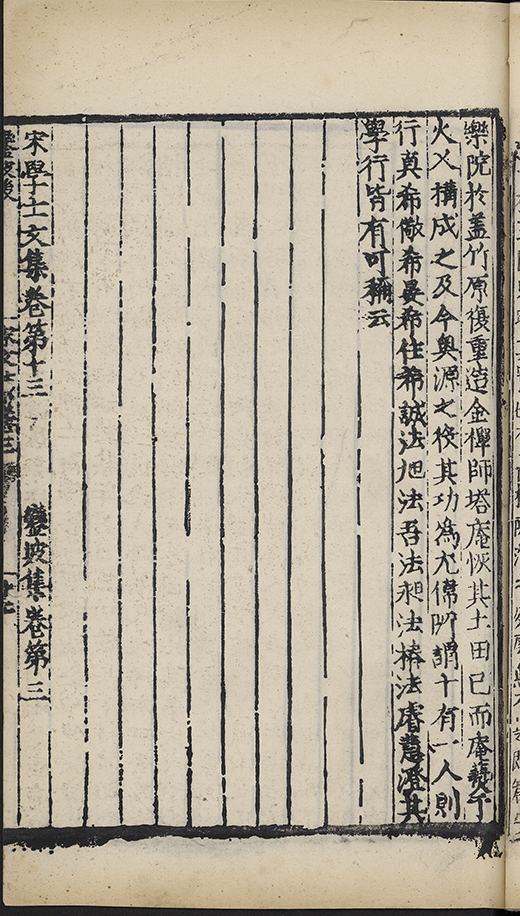 樂院於盖竹原復重造金禪師塔庵恢其土田已而庵燬于
火乂構成之及今奥源之役其功為尤偉所謂十有一人則
行真希儆希晏希住希誠法旭法吾法昶法椿法睿慧澄其
學行皆有可稱云
宋學士文集卷第十三 鑾坡集卷第三